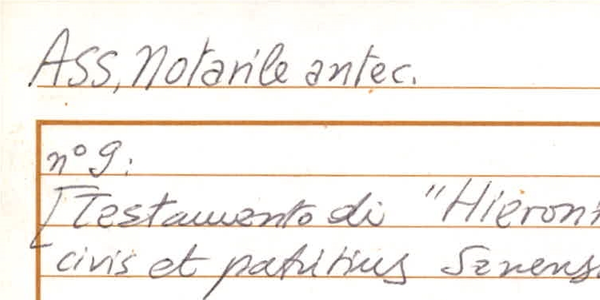 Ass, Notarile antec.
n° 9:
[Testamento di "Hieron
civis et patritius Senens